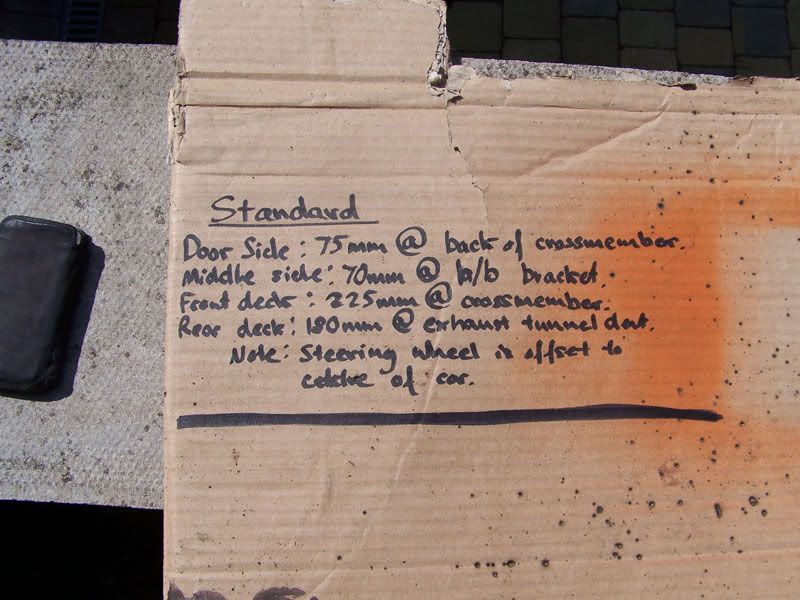 Standard
Door Side : 75mm @ back of crossmember.
Middle side: 70mm @ b/b bracket.
Front deck : 225mm @ crossmember.
Rear deck : 180mm @ exhaust tunnel dent.
Note: Steering wheel is offset to
of car.